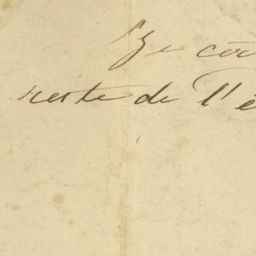 Je cô
reste de l'é